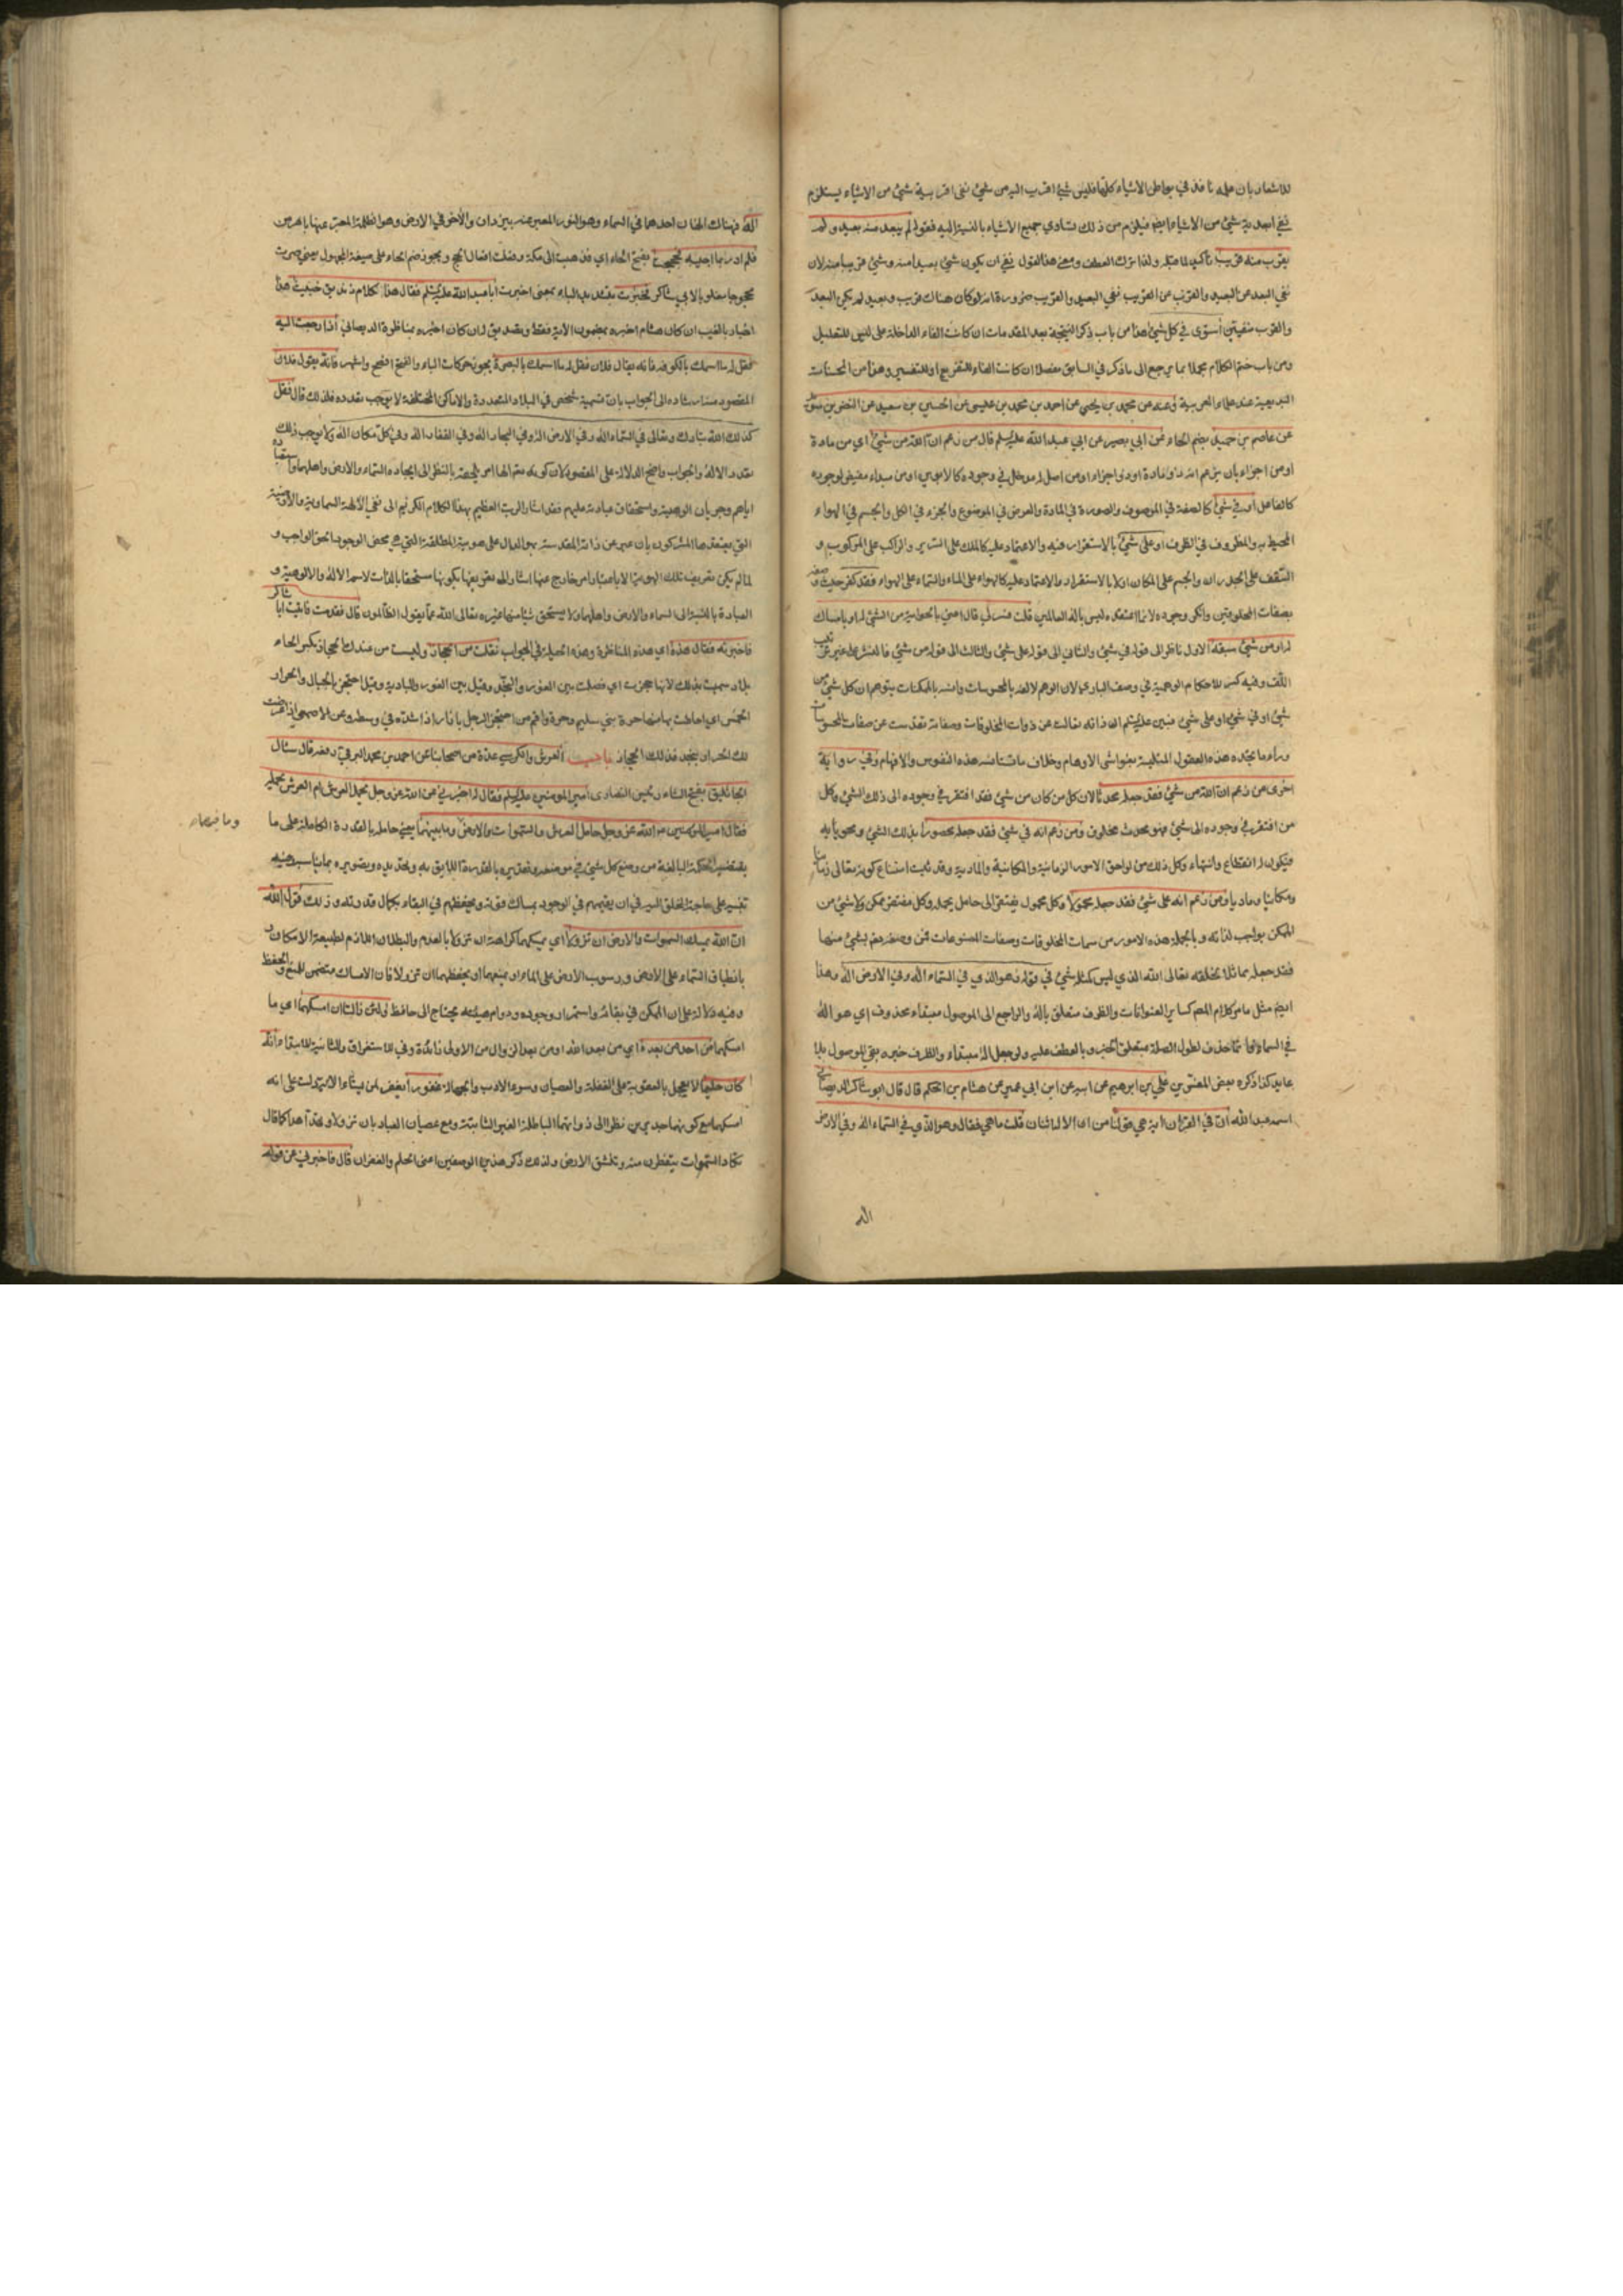 للاشعار بان علمه نافذ في بواطن الاشياء كلها فليس شيء اقرب اليه من شيء نفى اقربية شيء من الاشياء يستلزم
نفي ابعدية شيء من الاشياء ايضا فيلزم من ذلك تساوي جميع الاشياء بالنسبة اليه فقوله لم يبعد منه بعيد ولم
يقرب منه قريب تأكيد لما قبله ولذا ترك العطف ومعنى هذا القول نفي ان يكون شيء بعيدا منه وشيء قريبا منه لان
نفي البعد عن البعيد والقرب عن القريب نفي البعيد والقريب ضرورة انه لو كان هناك قريب وبعيد لم يكن البعد
والقرب منفيين استوى في كل شيء هذا من باب ذكر النتيجة بعد المقدمات ان كانت الفاء الداخلة على ليس للتعليل
ومن باب ختم الكلام مجملا بما يرجع الى ما ذكر في السابق مفصلا ان كانت الفاء للتفريع او للتفسير وهذا من المحسنات
البديعية عند علماء العربية وعنه عن محمد بن يحيى عن احمد بن محمد بن عيسى عن الحسين بن سعيد عن النضر بن سويد
عن عاصم بن حميد بضم الحاء عن ابي بصير عن ابي عبد الله عليه السلم قال من زعم ان الله من شيء اي من مادة
او من اجزاء بان يزعم انه ذو مادة او ذو اجزاء او من اصل له مدخل في وجوده كالابوين او من مبداء مفيض لوجوده
كالفاعل او في شيء كالصفة في الموصوف والصورة في المادة والعرض في الموضوع والجزء في الكل والجسم في الهواء
المحيط به والمظروف في الظرف او على شيء بالاستقرار فيه والاعتماد عليه كالملك على السرير والراكب على المركوب و
السقف على الجدران والجسم على المكان او لا بالاستقرار والاعتماد عليه كالهواء على الماء والسماء على الهواء فقد كفر حيث وصفه
بصفات المخلوقين وانكر وجوده لان ما اعتقده ليس باله العالمين قلت فسر لي قال اعني بالحواية من الشيء له او بامساك
له او من شيء سبقه الاول ناظر الى قوله في شيء والثاني الى قوله على شيء والثالث الى قوله من شيء فالنشر على غير ترتيب
اللف وفيه كسر للاحكام الوهمية في وصف الباري لان الوهم لالفه بالمحسوسات وانسه بالممكنات يتوهم ان كل شيء من
شيء او في شيء او على شيء فبين عليه السلم ان ذاته تعالت عن ذوات المخلوقات وصفاته تقدست عن صفات المحسوسات
وراء ما تجده هذه العقول المبتلية بغواشي الاوهام وخلاف ما تستانسه هذه النفوس والافهام وفي رواية
اخرى من زعم ان الله من شيء فقد جعله محدثا لان كل من كان من شيء فقد افتقر في وجوده الى ذلك الشيء وكل
من افتقر في وجوده الى شيء فهو محدث مخلوق ومن زعم انه في شيء فقد جعله محصورا بذلك الشيء ومحويا به
فيكون له انقطاع وانتهاء وكل ذلك من لواحق الامور الزمانية والمكانية والمادية وقد ثبت امتناع كونه تعالى زمانيا
ومكانيا وماديا ومن زعم انه على شيء فقد جعله محمولا وكل محمول يفتقر الى حامل يحمله وكل مفتقر ممكن ولا شيء من
الممكن بواجب لذاته وبالجملة هذه الامور من سمات المخلوقات وصفات المصنوعات فمن وصفه تعالى بشيء منها
فقد جعله مماثلا لخلقه تعالى الله الذي ليس كمثله شيء في قوله وهو الذي في السماء اله وفي الارض اله وهذا
ايضا مثل ما مر كلام المصنف كساير العنوانات والظرف متعلق باله والراجع الى الموصول مبتداء محذوف اي هو اله
في السماء وانما حذف لطول الصلة بمتعلق الخبر وبالعطف عليه ولو جعل اله مبتداء والظرف خبره بقي الموصول بلا
عايد كذا ذكره بعض المفسرين علي بن ابرهيم عن ابيه عن ابن ابي عمير عن هشام بن الحكم قال قال ابو شاكر الديصاني
اسمه عبد الله ان في القرآن آية هي قولنا من ان الاله اثنان قلت ما هي فقال وهو الذي في السماء اله وفي الارض
اله
اله فهناك الهان احدهما في السماء وهو النور المعبر عنه بيزدان والآخر في الارض وهو الظلمة المعبر عنها باهرمن
فلم ادر بما اجيبه فحججت بفتح الحاء اي فذهبت الى مكة وفعلت افعال الحج ويجوز ضم الحاء على صيغة المجهول يعني صرت
محجوجا مغلوبا لابي شاكر فخبرت بتشديد الباء بمعنى اخبرت ابا عبد الله عليه السلم فقال هذا كلام زنديق خبيث هذا
اخبار بالغيب ان كان هشام اخبره بمضمون الآية فقط وتصديق له ان كان اخبره بمناظرة الديصاني اذا رجعت اليه
فقل له ما اسمك بالكوفة فانه يقول فلان فقل له ما اسمك بالبصرة يجوز حركات الباء والفتح افصح واشهر فانه يقول فلان
المقصود منه ارشاده الى الجواب بان تسمية شخص في البلاد المتعددة والاماكن المختلفة لا يوجب تعدده فلذلك قال فقل
كذلك الله تبارك وتعالى في السماء اله وفي الارض اله وفي البحار اله وفي القفار اله وفي كل مكان اله ولا يوجب ذلك
تعدد الاله والجواب واضح الدلالة على المقصود لان كونه تعالى الها امر يلحقه بالنظر الى ايجاده السماء والارض واهلهما واستعباده
اياهم وجريان الوهيته واستحقاق عبادته عليهم فقد اشار الرب العظيم بهذا الكلام الكريم الى نفي الآلهة السماوية والارضية
التي يعتقدها المشركون بان عبر عن ذاته المقدسة بهو الدال على هويته المطلقة التي هي محض الوجود الحق الواجب و
لما لم يكن تعريف تلك الهوية الا باعتبار امر خارج عنها اشار الى تعريفها بكونها مستحقا بالذات لاسم الاله والالوهية و
العبادة بالنسبة الى السماء والارض واهلهما ولا يستحق شيئا منها غيره تعالى الله عما يقول الظالمون قال فقدمت فاتيت ابا شاكر
فاخبرته فقال هذه اي هذه المناظرة وهذه الحيلة في الجواب نقلت من الحجاز وليست من عندك الحجاز بكسر الحاء
بلاد سميت بذلك لانها حجزت اي فصلت بين الغور والنجد وقيل بين الغور والبادية وقيل احتجز بالجبال والحرار
الخمس اي احاطت بها منها حرة بني سليم وحرة واقم من احتجز الرجل بازار اذا شده في وسطه وعن الاصمعي اذا عرضت
لك الحرار بنجد فذلك الحجاز باب العرش والكرسي عدة من اصحابنا عن احمد بن محمد البرقي رفعه قال سئال
الجاثليق بفتح الثاء رئيس النصارى امير المومنين عليه السلم فقال له اخبرني عن الله عز وجل يحمل العرش ام العرش يحمله
فقال امير المومنين ع الله عز وجل حامل العرش والسموات والارض وما فيهما وما بينهما يعني حامله بالقدرة الكاملة على ما
يقتضيه الحكمة البالغة من وضع كل شيء في موضعه وتقديره بالقدر اللايق به وتحديده وتصويره بما يناسبه فيه
تنبيه على حاجة الخلق اليه في ان يقيمهم في الوجود بمساك قوته ويحفظهم في البقاء بكمال قدرته وذلك قول الله
ان الله يمسك السموات والارض ان تزولا اي يمسكهما كراهة ان تزولا بالعدم والبطلان اللازم لطبيعة الامكان او
بانطباق السماء على الارض ورسوب الارض على الماء او يمنعهما او يحفظهما ان تزولا فان الامساك متضمن للمنع والحفظ
وفيه دلالة على ان الممكن في بقائه واستمرار وجوده ودوام هيئته يحتاج الى حافظ ولئن زالتا ان امسكهما اي ما
امسكهما من احد من بعده اي من بعد الله او من بعد الزوال من الاولى زائدة وفي للاستغراق والثانية للابتداء انه
كان حليما لا يعجل بالعقوبة على الغفلة والعصيان وسوء الادب والجهالة غفورا يغفر لمن يشاء الآية دلت على انه
امسكهما مع كونهما جديرين نظرا الى ذواتهما الباطلة الغير الثابتة ومع عصيان العباد بان تزولا وتهدا هدا كما قال
تكاد السموات يتفطرن منه وتنشق الارض ولذلك ذكر هذين الوصفين اعني الحلم والغفران قال فاخبرني عن قوله